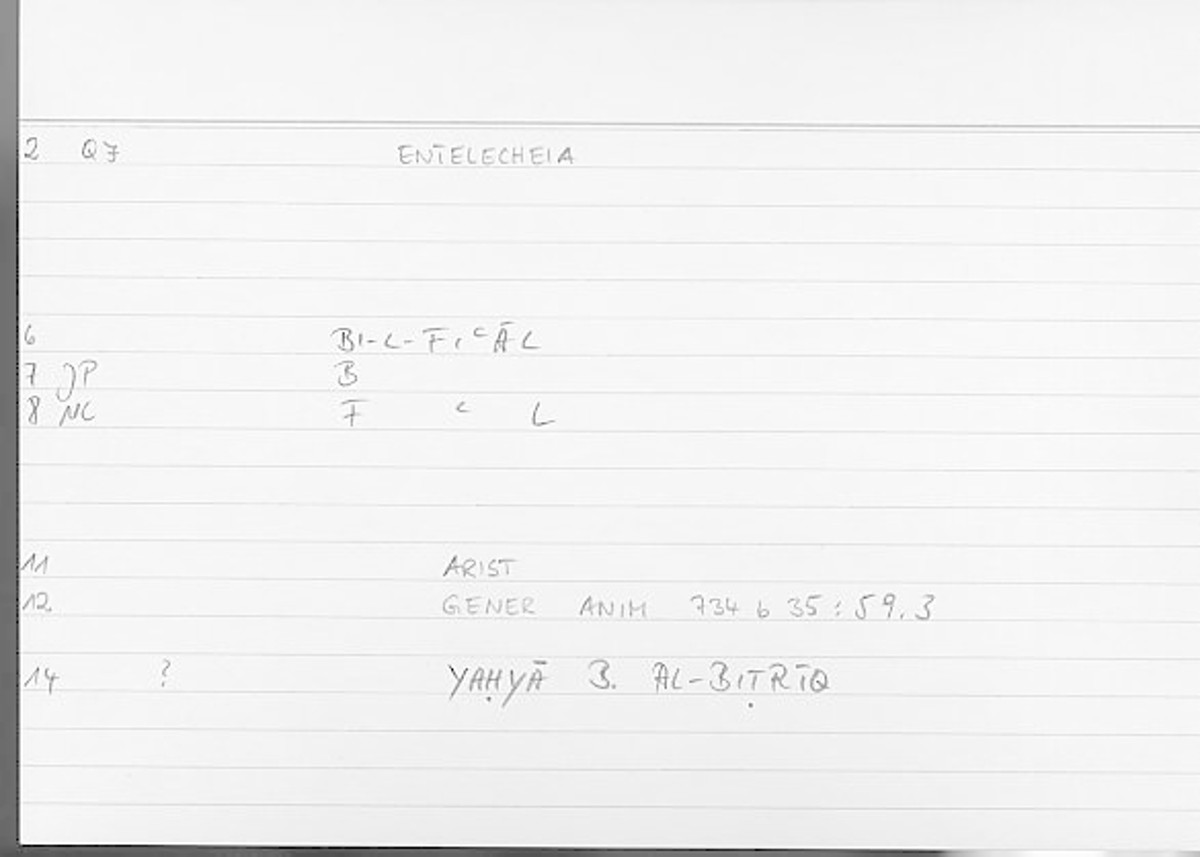 2 Q7 ENTELECHEIA
6 BI-L-FIᶜĀL
7 JP B
8 NC F ᶜ L
11 ARIST
12 GENER ANIM 734 b 35 : 59.3
14 ? YAḤYĀ B. AL-BIṬRĪQ